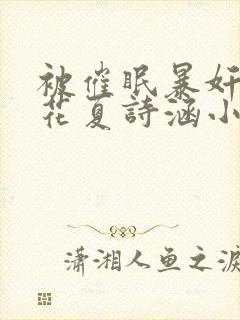 被催眠暴奸
花夏詩涵小
瀟湘人鱼之淚